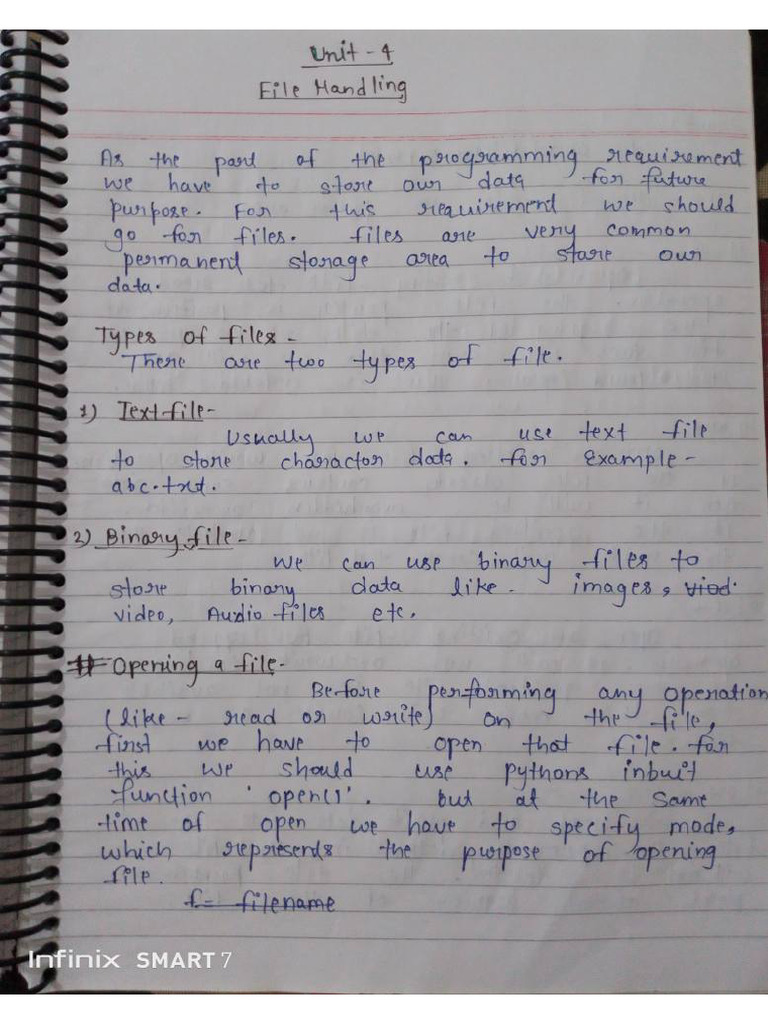 Unit - 4
File Handling
As the part of the programming requirement
we have to store our data for future
purpose. For this requirement we should
go for files. files are very common
permanend storage area to store our
data.
Types of files -
There are two types of file.
1) Text file -
Usually we can use text file
to store charactor data. for Example -
abc.txt.
2) Binary file -
We can use binary files to
store binary data like. images, viod.
video, Audio files etc.
# Opening a file -
Before performing any operation
(like - read or write) on the file,
first we have to open that file. for
this we should use pythons inbuit
function 'open()'. but at the same
time of open we have to specify mode,
which represends the purpose of opening
file.
f= filename
Infinix SMART 7